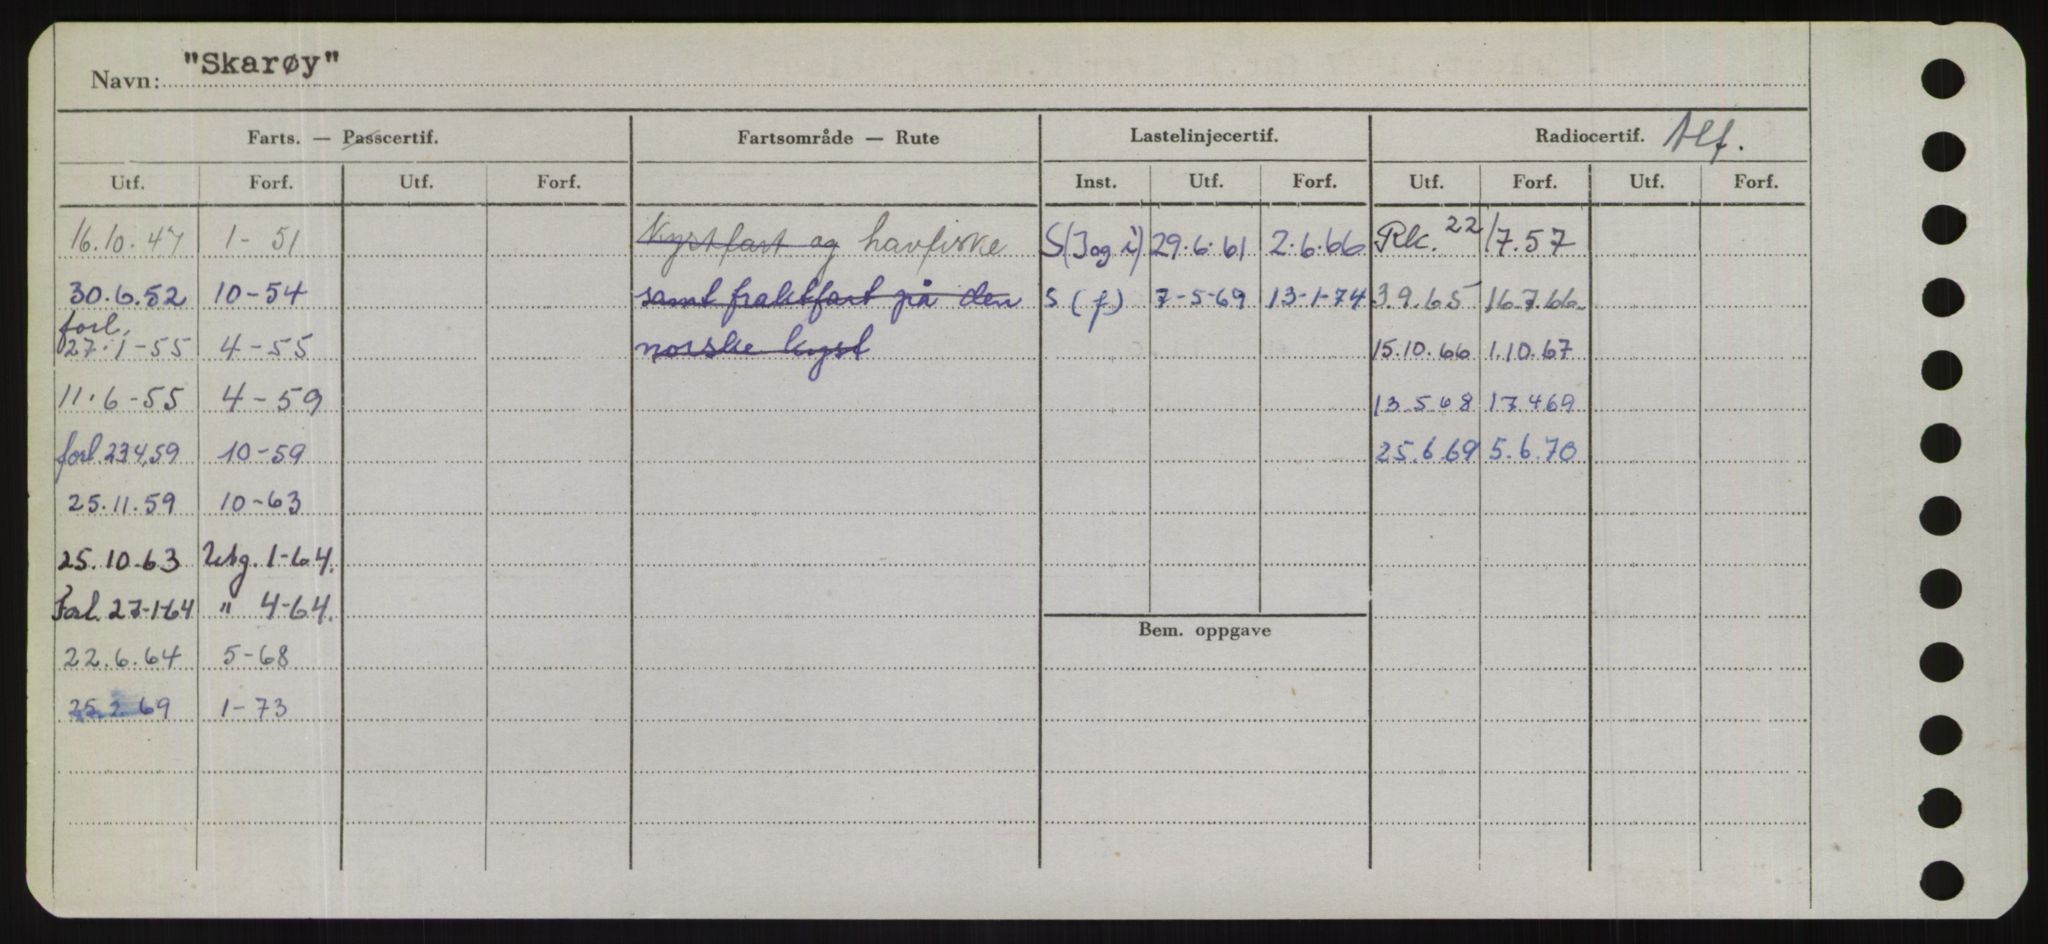 Navn: "Skarøy"
Farts. — Passcertif. Fartsområde — Rute Lastelinjecertif. Radiocertif. Alf.
Utf. Forf. Utf. Forf. Inst. Utf. Forf. Utf. Forf. Utf. Forf.
16.10.47 1-51 Kystfart og havfiske S(J og i) 29.6.61 2.6.66 Rk. 22/7.57
30.6.52 10-54 samt fraktfart på den S (f) 7-5-69 13-1-74 3.9.65 16.7.66
forl.
27.1-55 4-55 norske kyst 15.10.66 1.10.67
11.6-55 4-59 13.5.68 17.4.69
forl. 23.4.59 10-59 25.6.69 5.6.70
25.11.59 10-63
25.10.63 Utg. 1-64.
Forl. 27-1-64 " 4-64.
Bem. oppgave
22.6.64 5-68
25.2.69 1-73